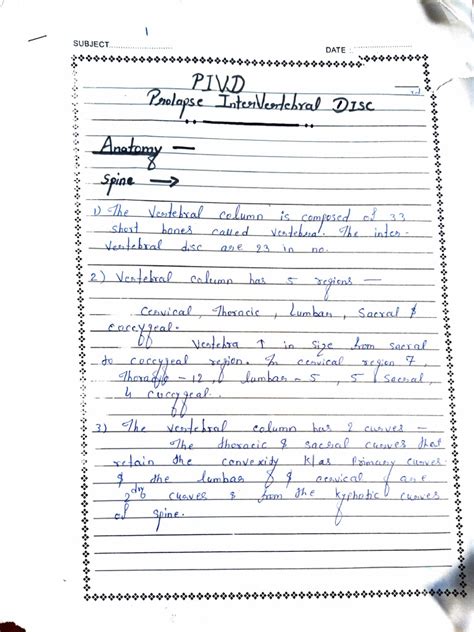 1
SUBJECT
DATE :
PIVD
Prolapse InterVertebral Disc
Anatomy —
Spine →
1) The Vertebral column is composed of 33
short bones called vertebra. The inter-
Vertebral disc are 23 in no.
2) Vertebral column has 5 regions —
Cervical, Thoracic, Lumbar, Sacral &
coccygeal.
Vertebra ↑ in size from sacral
to coccygeal region. In cervical region 7
Thoracic - 12, lumbar - 5, 5 Sacral,
4 coccygeal.
3) The vertebral column has 2 curves —
The thoracic & sacral curves that
retain the convexity K/as Primary curves
& the lumbar & cervical are
2dry curves & from the kyphotic curves
of spine.